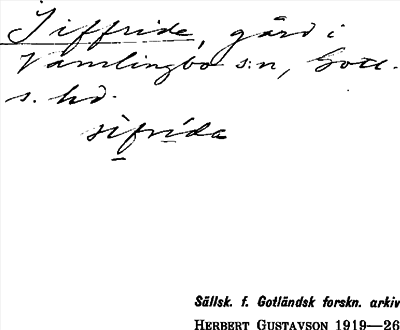 Siffride, gård i
Vamlingbo s:n, Gotl.
s. hd.
sifrida
Sällsk. f. Gotländsk forskn. arkiv
HERBERT GUSTAVSON 1919—26